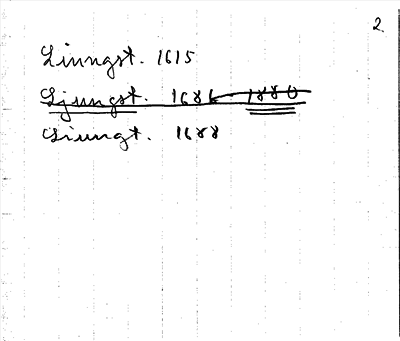 2.
Liungst. 1615
Ljungst. 1686 1880
Liungt. 1688